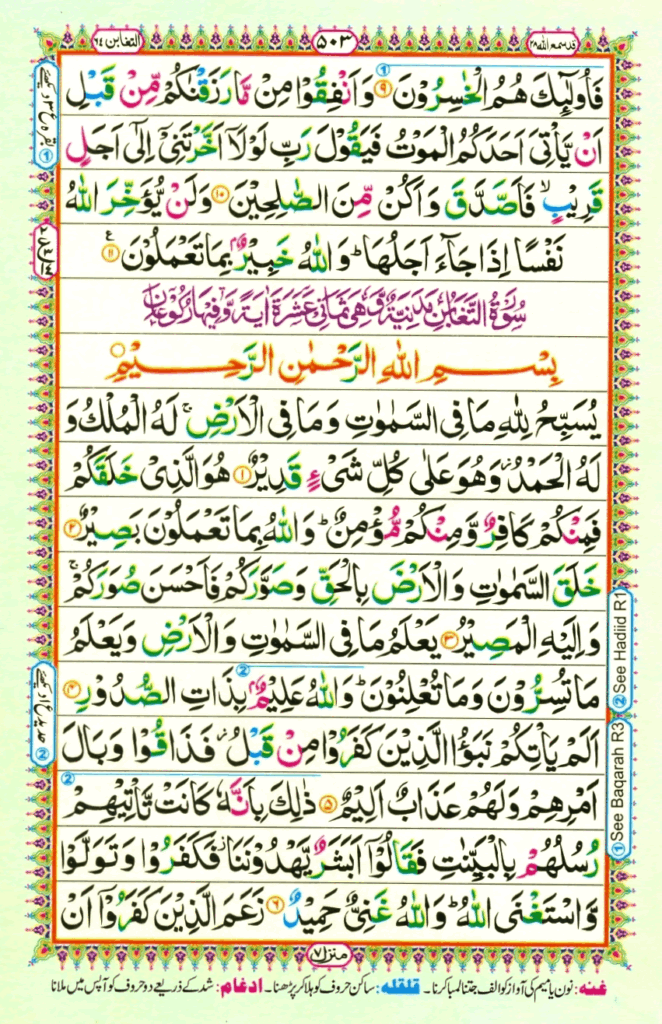 قد سمع اللّٰه ٢٨
٥٠٣
التغابن ٦٤
فَاُولٰٓئِكَ هُمُ الْخٰسِرُوْنَ ۝٩ وَاَنْفِقُوْا مِنْ مَّا رَزَقْنٰكُمْ مِّنْ قَبْلِ
اَنْ يَّاْتِىَ اَحَدَكُمُ الْمَوْتُ فَيَقُوْلَ رَبِّ لَوْلَاۤ اَخَّرْتَنِىْۤ اِلٰٓى اَجَلٍ
قَرِيْبٍ ۙ فَاَصَّدَّقَ وَاَكُنْ مِّنَ الصّٰلِحِيْنَ ۝١٠ وَلَنْ يُّؤَخِّرَ اللّٰهُ
نَفْسًا اِذَا جَآءَ اَجَلُهَا ؕ وَاللّٰهُ خَبِيْرٌۢ بِمَا تَعْمَلُوْنَ ۝١١
سُوْرَةُ التَّغَابُنِ مَدَنِيَّةٌ وَّهِىَ ثَمَانِىَ عَشْرَةَ اٰيَةً وَّفِيْهَا رُكُوْعَانِ
بِسْمِ اللّٰهِ الرَّحْمٰنِ الرَّحِيْمِ
يُسَبِّحُ لِلّٰهِ مَا فِى السَّمٰوٰتِ وَمَا فِى الْاَرْضِ ۚ لَهُ الْمُلْكُ وَ
لَهُ الْحَمْدُ ؗ وَهُوَ عَلٰى كُلِّ شَىْءٍ قَدِيْرٌ ۝١ هُوَ الَّذِىْ خَلَقَكُمْ
فَمِنْكُمْ كَافِرٌ وَّمِنْكُمْ مُّؤْمِنٌ ؕ وَاللّٰهُ بِمَا تَعْمَلُوْنَ بَصِيْرٌ ۝٢
خَلَقَ السَّمٰوٰتِ وَالْاَرْضَ بِالْحَقِّ وَصَوَّرَكُمْ فَاَحْسَنَ صُوَرَكُمْ ۚ
وَاِلَيْهِ الْمَصِيْرُ ۝٣ يَعْلَمُ مَا فِى السَّمٰوٰتِ وَالْاَرْضِ وَيَعْلَمُ
مَا تُسِرُّوْنَ وَمَا تُعْلِنُوْنَ ؕ وَاللّٰهُ عَلِيْمٌۢ بِذَاتِ الصُّدُوْرِ ۝٤
اَلَمْ يَاْتِكُمْ نَبَؤُا الَّذِيْنَ كَفَرُوْا مِنْ قَبْلُ ؗ فَذَاقُوْا وَبَالَ
اَمْرِهِمْ وَلَهُمْ عَذَابٌ اَلِيْمٌ ۝٥ ذٰلِكَ بِاَنَّهٗ كَانَتْ تَّاْتِيْهِمْ
رُسُلُهُمْ بِالْبَيِّنٰتِ فَقَالُوْۤا اَبَشَرٌ يَّهْدُوْنَنَا ؗ فَكَفَرُوْا وَتَوَلَّوْا
وَّاسْتَغْنَى اللّٰهُ ؕ وَاللّٰهُ غَنِىٌّ حَمِيْدٌ ۝٦ زَعَمَ الَّذِيْنَ كَفَرُوْۤا اَنْ
② See Hadiid R1
① See Baqarah R3
منزل ٧
غنہ: نون یا میم کی آواز کو الف جتنا لمبا کرنا۔ قلقلہ: ساکن حروف کو ہلا کر پڑھنا۔ ادغام: شد کے ذریعے دو حروف کو آپس میں ملانا